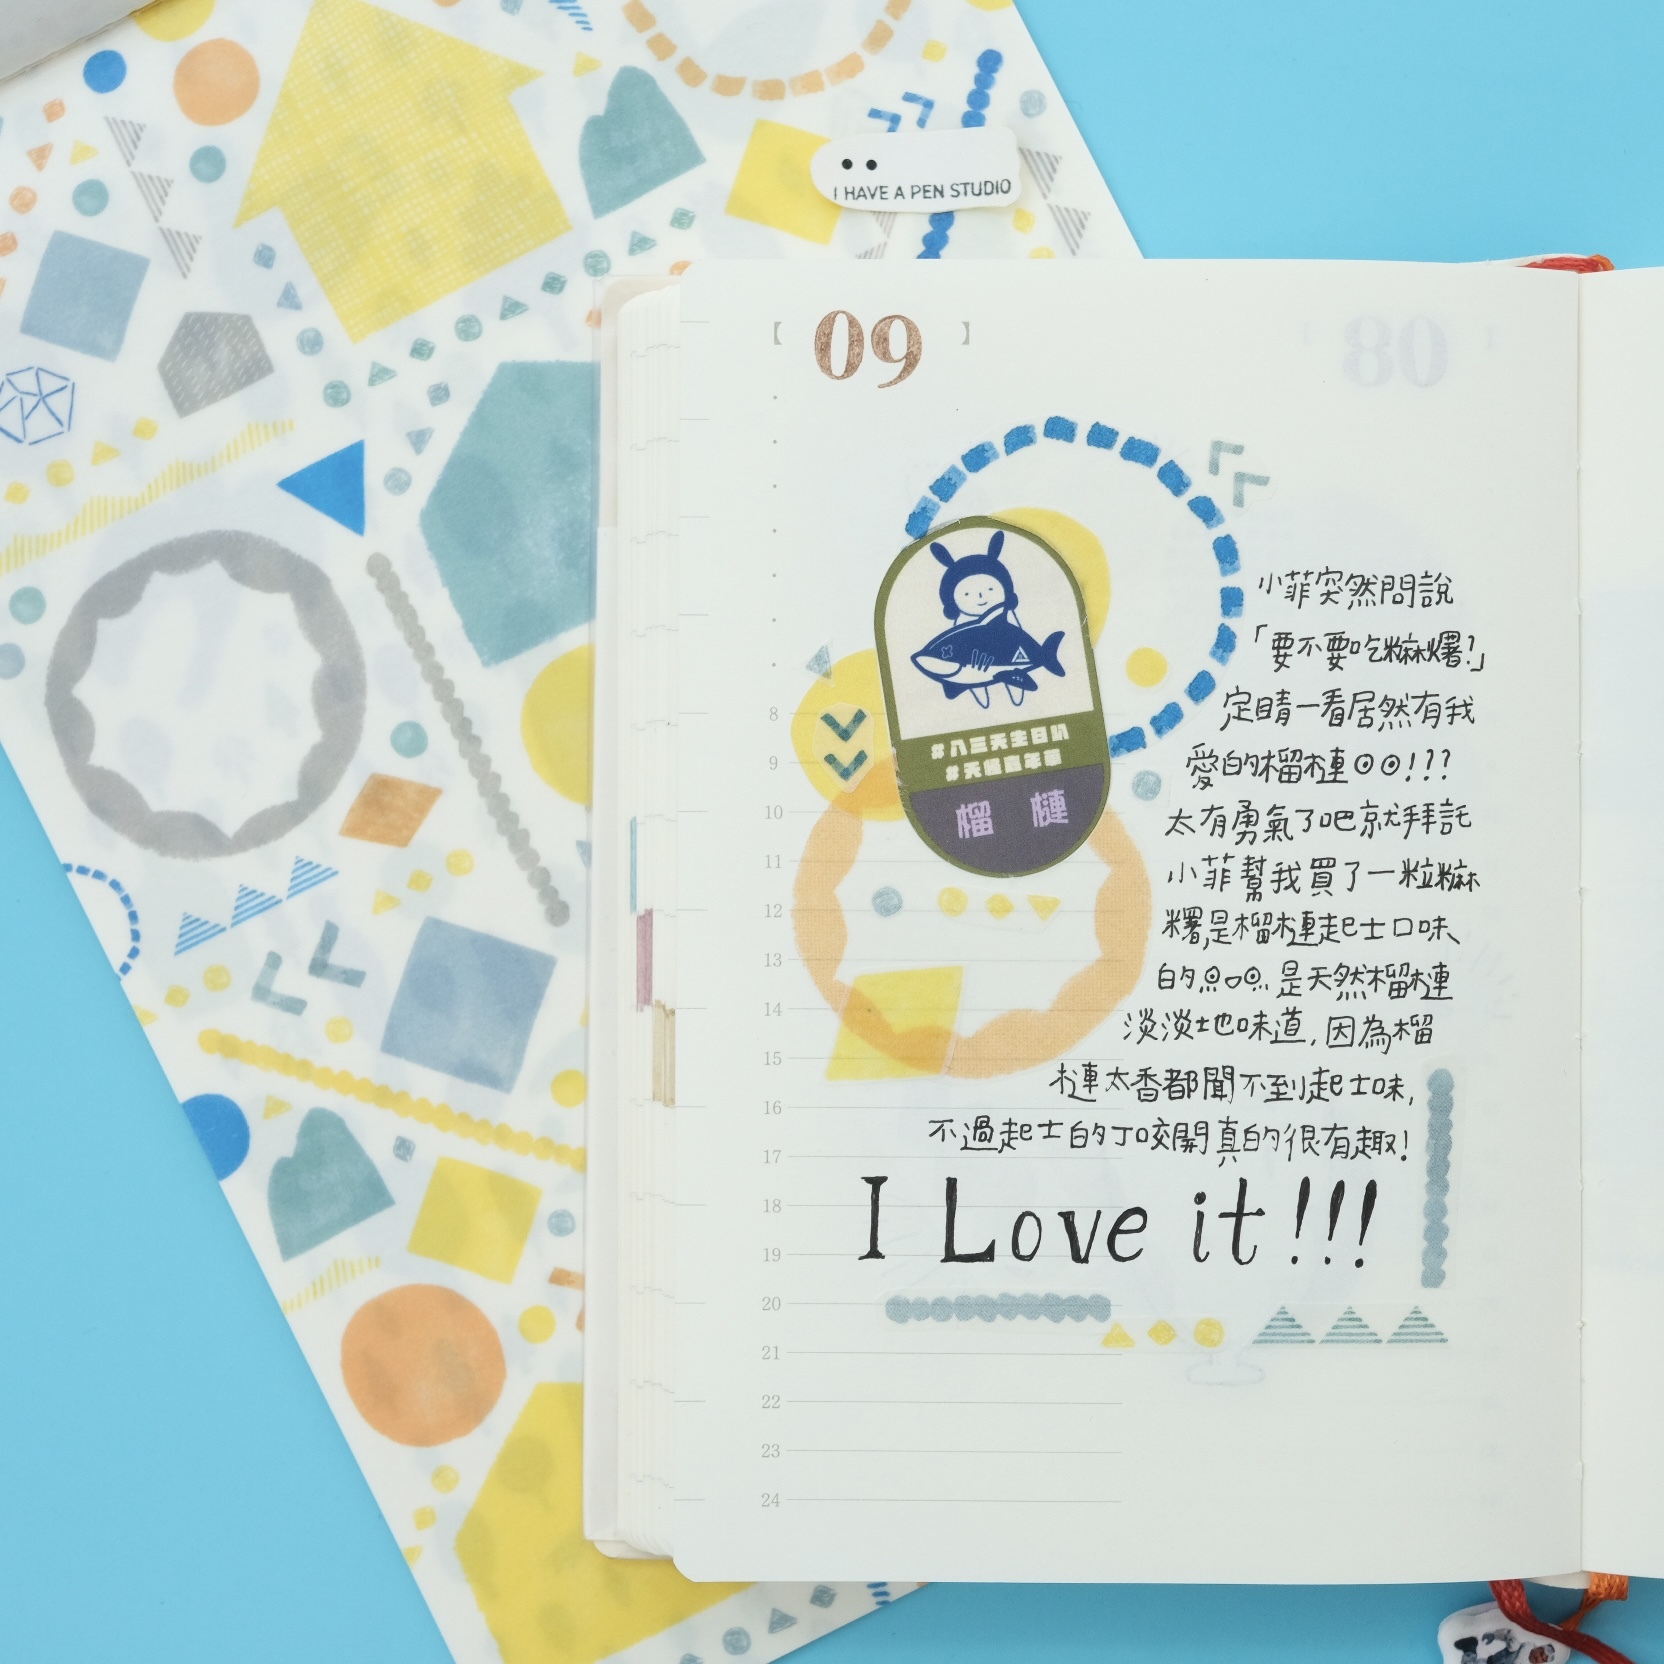 I HAVE A PEN STUDIO
【 09 】
小菲突然問說
「要不要吃糍麻糬?」
定睛一看居然有我
愛的榴槤⊙⊙!??
太有勇氣了吧就拜託
小菲幫我買了一粒麻
糬,是榴槤起士口味
的 是天然榴槤
淡淡地味道,因為榴
槤太香都聞不到起士味,
不過起士的丁咬開真的很有趣!
I Love it!!!
#八三夭生日趴
榴 槤
8
9
10
11
12
13
14
15
16
17
18
19
20
21
22
23
24